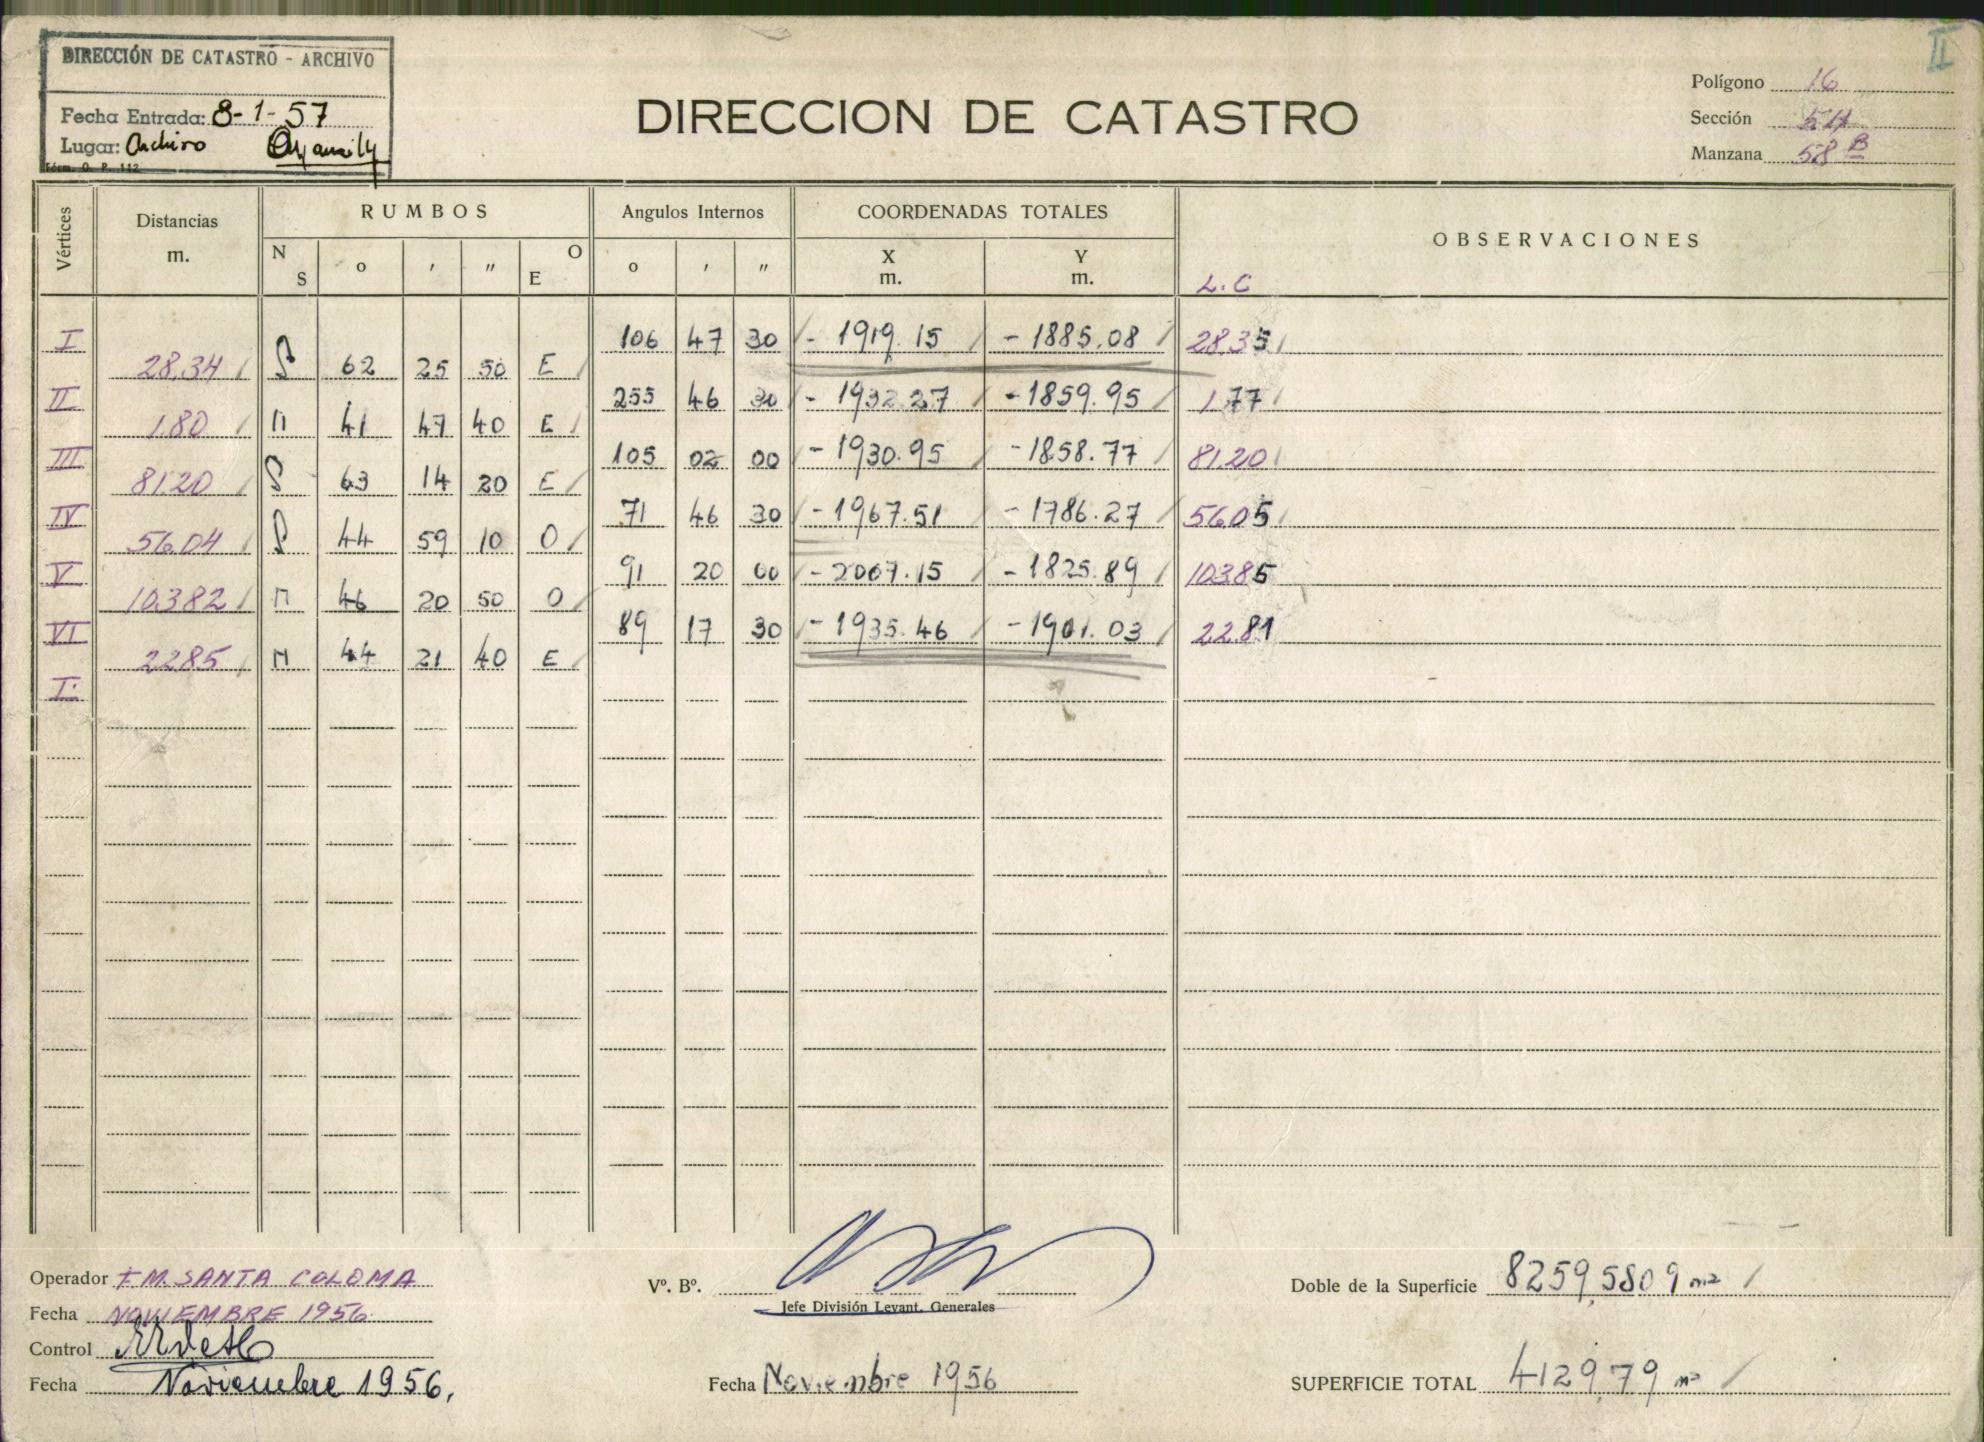 DIRECCIÓN DE CATASTRO - ARCHIVO
Fecha Entrada: 8-1-57
Lugar: Archivo
Fórm. O. P. 112
DIRECCION DE CATASTRO
II
Polígono 16
Sección
Manzana 58 B
Vértices Distancias m. RUMBOS N S o ' " O E Angulos Internos o ' " COORDENADAS TOTALES X m. Y m. OBSERVACIONES
L.C
I 106 47 30 - 1919.15 - 1885.08 28.35
28.34 S 62 25 50 E
II 255 46 30 - 1932.27 - 1859.95 1.77
1.80 N 41 47 40 E
III 105 02 00 - 1930.95 - 1858.77 81.20
81.20 S 63 14 20 E
IV 71 46 30 - 1967.51 - 1786.27 56.05
56.04 S 44 59 10 O
V 91 20 00 - 2007.15 - 1825.89 103.85
103.82 N 46 20 50 O
VI 89 17 30 - 1935.46 - 1901.03 22.81
22.85 N 44 21 40 E
I.
Operador F.M. SANTA COLOMA
Fecha NOVIEMBRE 1956
Control
Fecha Noviembre 1956.
Vº. Bº.
Jefe División Levant. Generales
Fecha Noviembre 1956
Doble de la Superficie 8259,5809 m2
SUPERFICIE TOTAL 4129,79 m2